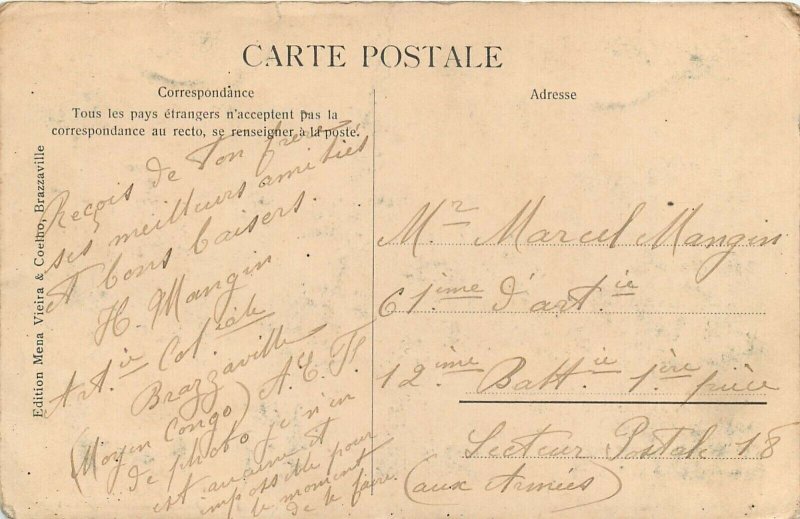 CARTE POSTALE
Correspondance
Tous les pays étrangers n'acceptent pas la
correspondance au recto, se renseigner à la poste.
Edition Mena Vieira & Coelho, Brazzaville
Reçois de ton frère
ses meilleurs amitiés
et bons baisers.
H. Mangin
Artie Coliale
Brazzaville
(Moyen Congo) A. E. F.
de photo je n'en
est aucune et
impossible pour
le moment
de le faire.
Adresse
Mr. Marcel Mangin
61ème d'artie
12ème Battie 1ère pièce
Secteur Postale 18
(aux Armées)